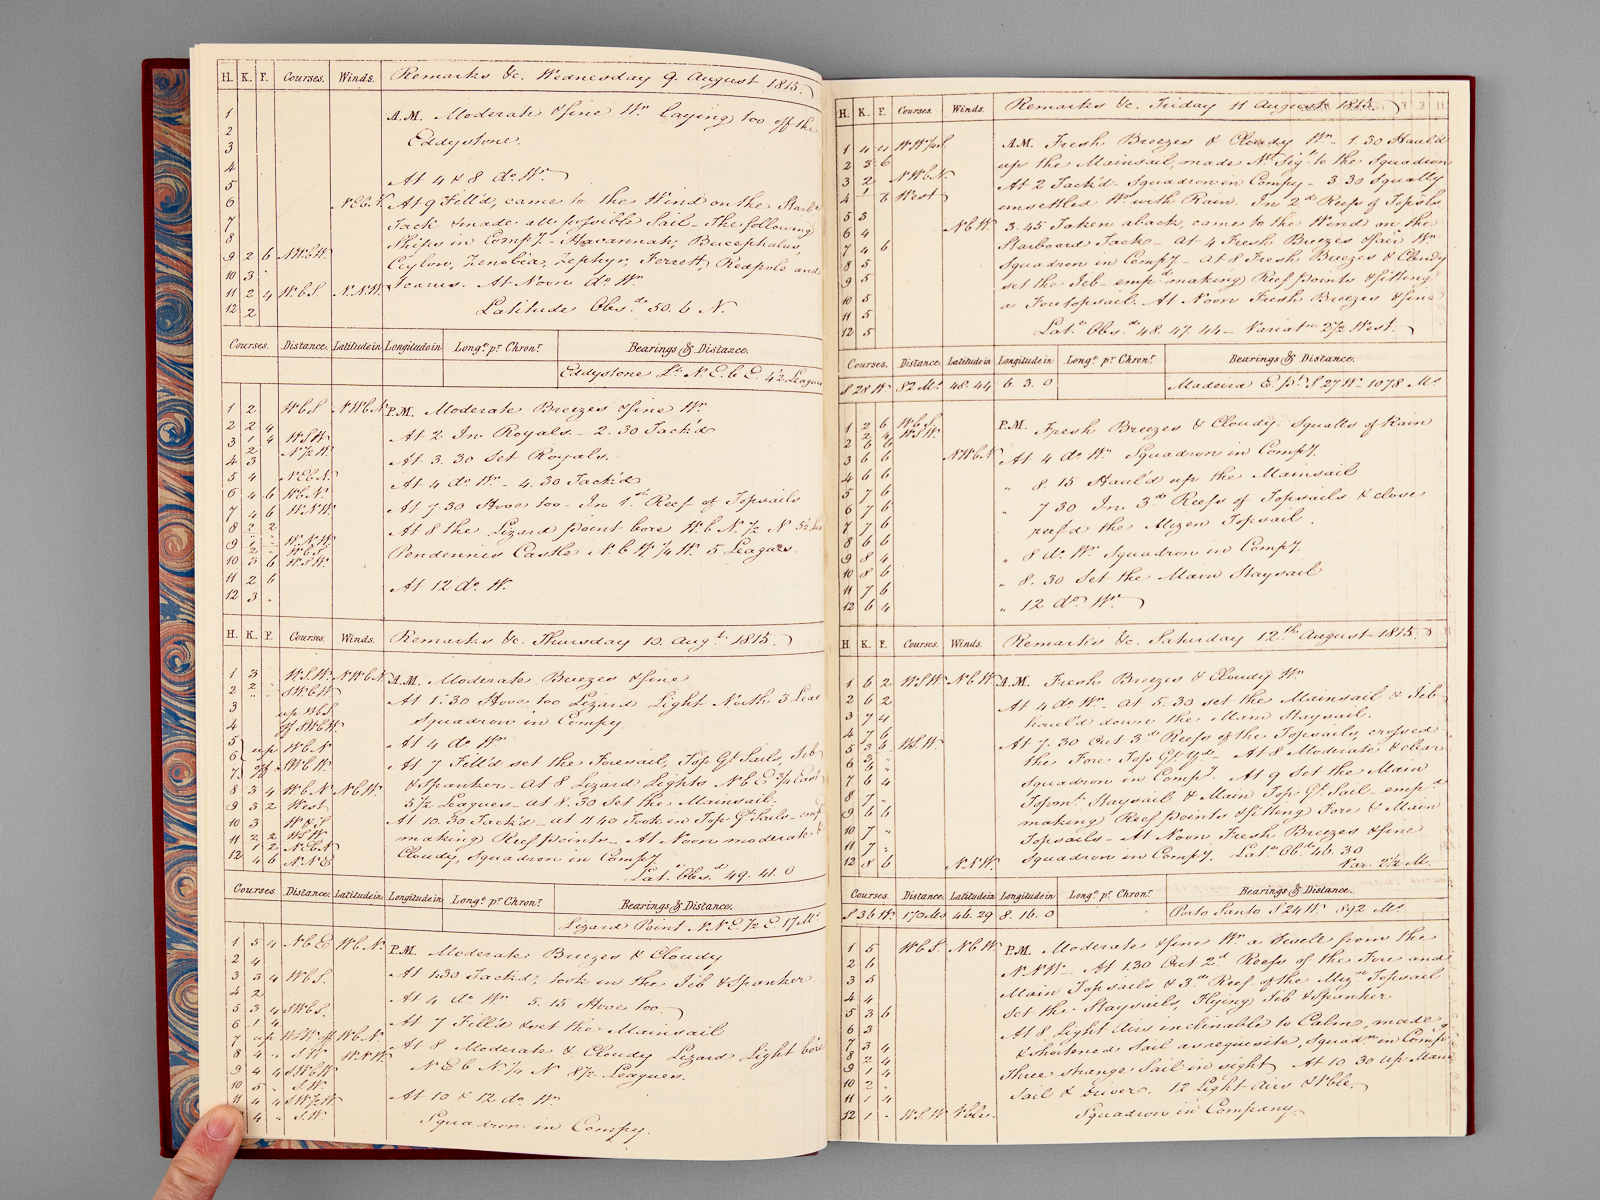 H. K. F. Courses. Winds. Remarks &c. Wednesday 9. August 1815.
1 A.M. Moderate & fine Wr. laying too off the
2 Eddystone.
3
4 At 4 & 8 do. Wr.
5
6 N.E.b.N. At 9 Fill'd, came to the Wind on the Starbd
7 Tack & made all possible Sail_ The following
8 Ships in Compy. Havannah, Bucephalus,
9 2 6 N.W.b.W. Ceylon, Zenobia, Zephyr, Ferrett, Redpole and
10 3 Icarus. At Noon do. Wr.
11 2 4 W.b.S. N.N.W.
12 2 Latitude Obs.d 50. 6 N.
Courses. Distance. Latitude in Longitude in Longe. pr. Chronr. Bearings & Distance.
Eddystone Lt. N.E.b.E. 4½ Leagues
1 2 W.b.S. N.W.b.N. P.M. Moderate Breezes & fine Wr.
2 2 4 At 2 In Royals_ 2.30 Tack'd
3 1 4 W.S.W.
2 N½W. At 3.30 Set Royals.
4 3
5 4 N.E.b.N. At 4 do. Wr._ 4.30 Tack'd
6 4 6 W.b.N. At 7 30 Hove too_ In 1st Reef of Topsails
7 4 6 W.N.W.
8 2 2 At 8 the Lizard point bore W.b.N.½ N
9 Pendennis Castle N.b.W.¼W. 5 Leagues.
10 3 6 W.S.W.
11 2 6 At 12 do. W.
12 3
H. K. F. Courses. Winds. Remarks &c. Thursday 10. Augt. 1815.
1 3 W.S.W. N.W.b.N. A.M. Moderate Breezes & fine
2 2 S.W.b.W. At 1.30 Hove too Lizard Light North 3 Lea
3 up W.b.S. Squadron in Compy.
4 off S.W.b.W.
5 up W.b.N. At 4 do. Wr.
6 off S.W.b.W. At 7 Fill'd set the Foresail, Top Gt. Sails, Jib
7 & Spanker_ At 8 Lizard Lights N.b.E ¾ East
8 3 4 W.b.N. N.b.W. 5½ Leagues_ at 8.30 Set the Mainsail.
9 3 2 West At 10.30 Tack'd_ at 11 40 Took in Top Gt. Sails_ emp
10 3 W.b.S. making Reef Points_ At Noon moderate &
11 2 2 W.S.W. Cloudy, Squadron in Compy.
1 2 N.E.b.N.
12 4 6 N.N.E Lat.e Obs.d 49. 41. 0
Courses. Distance. Latitude in Longitude in Longe. pr. Chronr. Bearings & Distance.
Lizard Point N.N.E.½ E. 17 Ms.
1 5 4 N.b.E W.b.N. P.M. Moderate Breezes & Cloudy
2 4
3 3 4 W.b.S. At 1.30 Tack'd, took in the Jib & Spanker
4 2 At 4 do. Wr. 5.15 Hove too.
5 3 4 S.W.b.S.
6 1 4 At 7 Fill'd & set the Mainsail
7 up W.b.N.
8 4 S.W. W.N.W. At 8 Moderate & Cloudy Lizard Light bore
9 4 4 S.W.b.W. N.E b N.¼ N 8½ Leagues.
10 5 S.W.
11 4 4 S.W.½W. At 10 & 12 do. Wr.
4 S.W. Squadron in Compy.
H. K. F. Courses. Winds. Remarks &c. Friday 11 August 1815.
1 4 4 A.M. Fresh Breezes & Cloudy Wr_ 1.30 Haul'd
2 3 6 up the Mainsail, made Nt. Sigl. to the Squadron
3 2 N.W.b.N. At 2 Tack'd. Squadron in Compy_ 3 30 Squally
4 West unsettled Wr. with Rain. In 2d Reefs of Topsls
5 3 3.45 Taken aback, came to the Wind on the
6 4 N.b.W. Starboard Tack_ At 4 Fresh Breezes & fair Wr.
7 4 6 Squadron in Compy_ At 8 Fresh Breezes & Cloudy
8 5 set the Jib_ empd making Reef points & fitting
9 5 a Foretopsail. At Noon Fresh Breezes & fine
10 5
11 5
12 5 Lat.e Obs.d 48. 47. 44_ Variatn 2½ West.
Courses. Distance. Latitude in Longitude in Longe. pr. Chronr. Bearings & Distance.
S 28 W. 82 Ms. 48. 44 6. 3. 0 Madeira E. pt. S 27 W. 1078 Ms.
1 2 6 W.b.S. P.M. Fresh Breezes & Cloudy. Squalls of Rain
2 2 4 W.S.W.
3 6 6 N.W.b.N. At 4 do. Wr. Squadron in Compy.
4 6 6 " 8. 15 Haul'd up the Mainsail
5 7 6 " 7 30 In 3d Reefs of Topsails & close
6 7 6 reef'd the Mizen Topsail.
7 7 6
8 6 6 " 8 do. Wr. Squadron in Compy.
9 8 4
10 8 6 " 8. 30 Set the Main Staysail
11 7 6
12 6 4 " 12 do. Wr.
H K. F. Courses. Winds. Remarks &c. Saturday 12th. August 1815.
1 6 2 W.S.W. N.b.W. A.M. Fresh Breezes & Cloudy Wr
2 6 2 At 4 do. Wr_ at 5.30 set the Mainsail & Jib
3 7 4 haul'd down the Main Staysail.
4 7 6 At 7.30 Out 3d Reefs of the Topsails, crossed
5 3 6 W.S.W. the Fore Top Gt. Yd._ At 8 Moderate & clear
6 3 Squadron in Compy. At 9 Set the Main
7 6 4 Topmt. Staysail & Main Top Gt. Sail_ emp.d
8 7 making Reef points & fitting Fore & Main
9 6 6 Topsails_ At Noon Fresh Breezes & fine
10 7 "
11 7 " Squadron in Compy. Lat.e Obd. 46. 30
12 8 6 N.N.W. Var. 2½ W.
Courses. Distance. Latitude in Longitude in Longe. pr. Chronr. Bearings & Distance.
S 36 W. 170 Ms 46. 29 8. 16. 0 Porto Santo S 24 W. 892 Ms.
1 5 W.b.S N.b.W P.M. Moderate & fine Wr a Swell from the
2 6 N.N.W_ At 1.30 Out 2d Reefs of the Fore and
3 5 Main Topsails & 3d Reef of the Mizn Topsail
4 4 set the Staysails, Flying Jib & Spanker
5 3 6 At 8 Light Airs inclinable to Calm, made
6 3 & shortened Sail as requisite, Squadn in Compy
7 3 4 Three strange Sail in sight At 10 30 up Main
8 2 4 Sail & Driver. 12 Light Airs & Vble.
9 1 4
10 2
11 1 4
12 1 W.S.W Vble. Squadron in Company